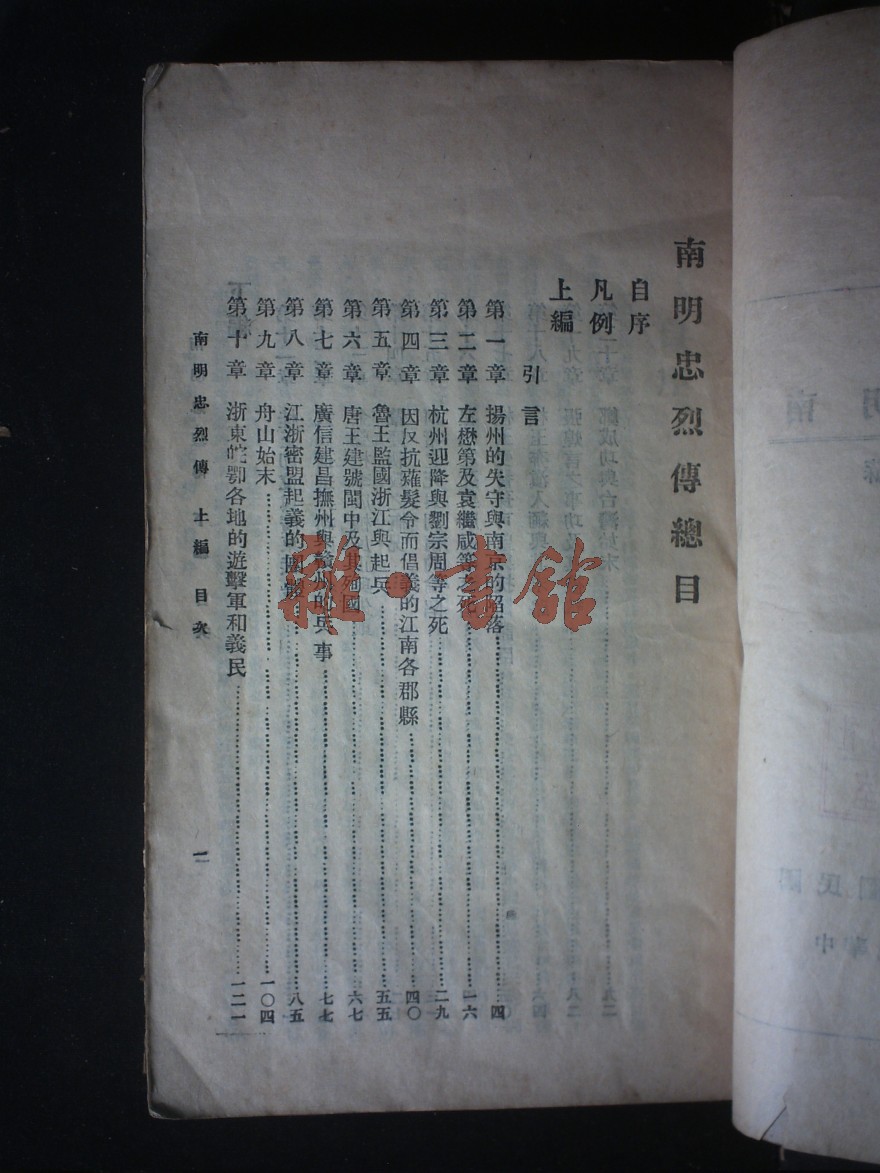 南明忠烈傳總目
自序
凡例
上編
引言
第一章 揚州的失守與南京的陷落……四
第二章 左懋第及袁繼咸等之死……一六
第三章 杭州迎降與劉宗周等之死……二九
第四章 因反抗薙髮令而倡義的江南各郡縣……四〇
第五章 魯王監國浙江與起兵……五五
第六章 唐王建號閩中及其殉國……六七
第七章 廣信建昌撫州與贛州的兵事……七七
第八章 江浙密盟起義的團體……八五
第九章 舟山始末……一〇四
第十章 浙東皖鄂各地的遊擊軍和義民……一二一
南明忠烈傳 上編 目次
一
雜·書館